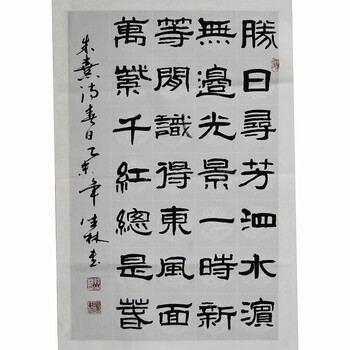 勝日尋芳泗水濵
無邊光景一時新
等閒識得東風面
萬紫千紅總是春
朱熹詩春日乙亥年佳林書